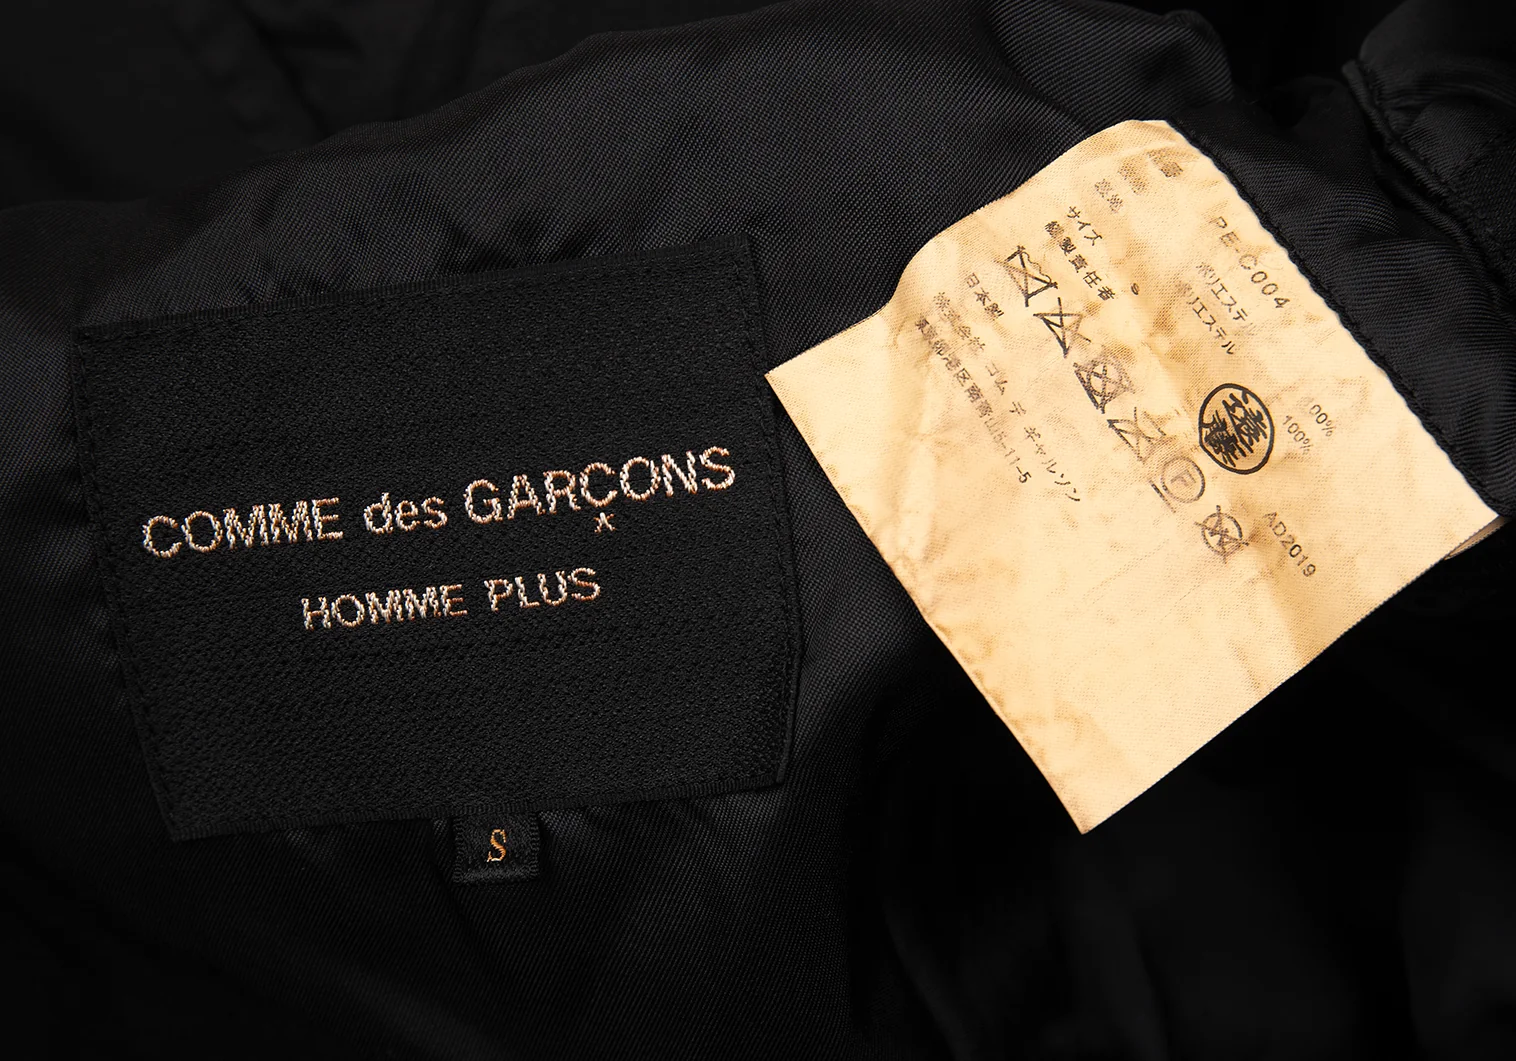 COMME des GARÇONS
HOMME PLUS
S
PE-C004
ポリエステル 100%
ポリエステル 100%
サイズ S
縫製責任者 遠藤
AD2019
F
日本製
株式会社 コム デ ギャルソン
東京都港区南青山5-11-5